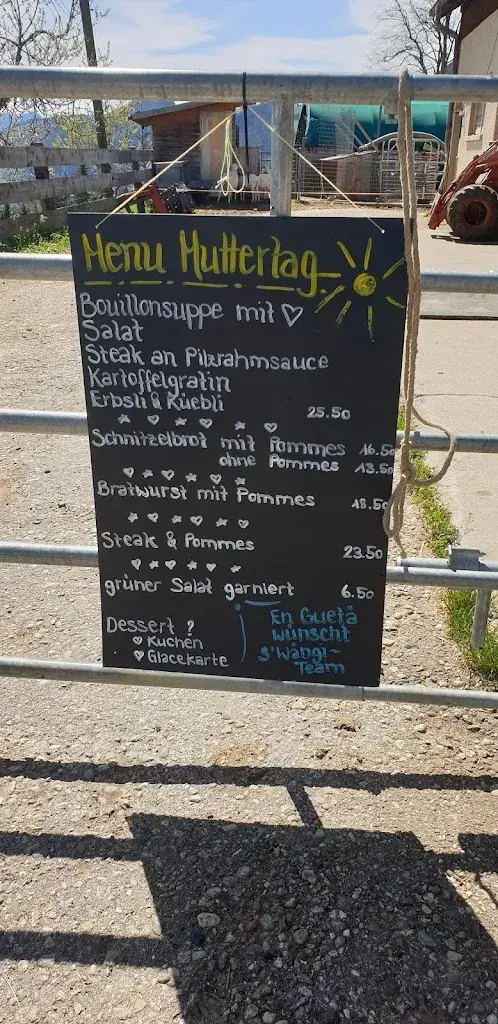 Menu Muttertag
Bouillonsuppe mit ♡
Salat
Steak an Pilzrahmsauce
Kartoffelgratin
Erbsli & Rüebli 25.50
Schnitzelbrot mit Pommes 16.50
ohne Pommes 13.50
Bratwurst mit Pommes 18.50
Steak & Pommes 23.50
grüner Salat garniert 6.50
Dessert ?
♡ Kuchen
♡ Glacekarte
En Guetä
wünscht
S'Wängi-
Team